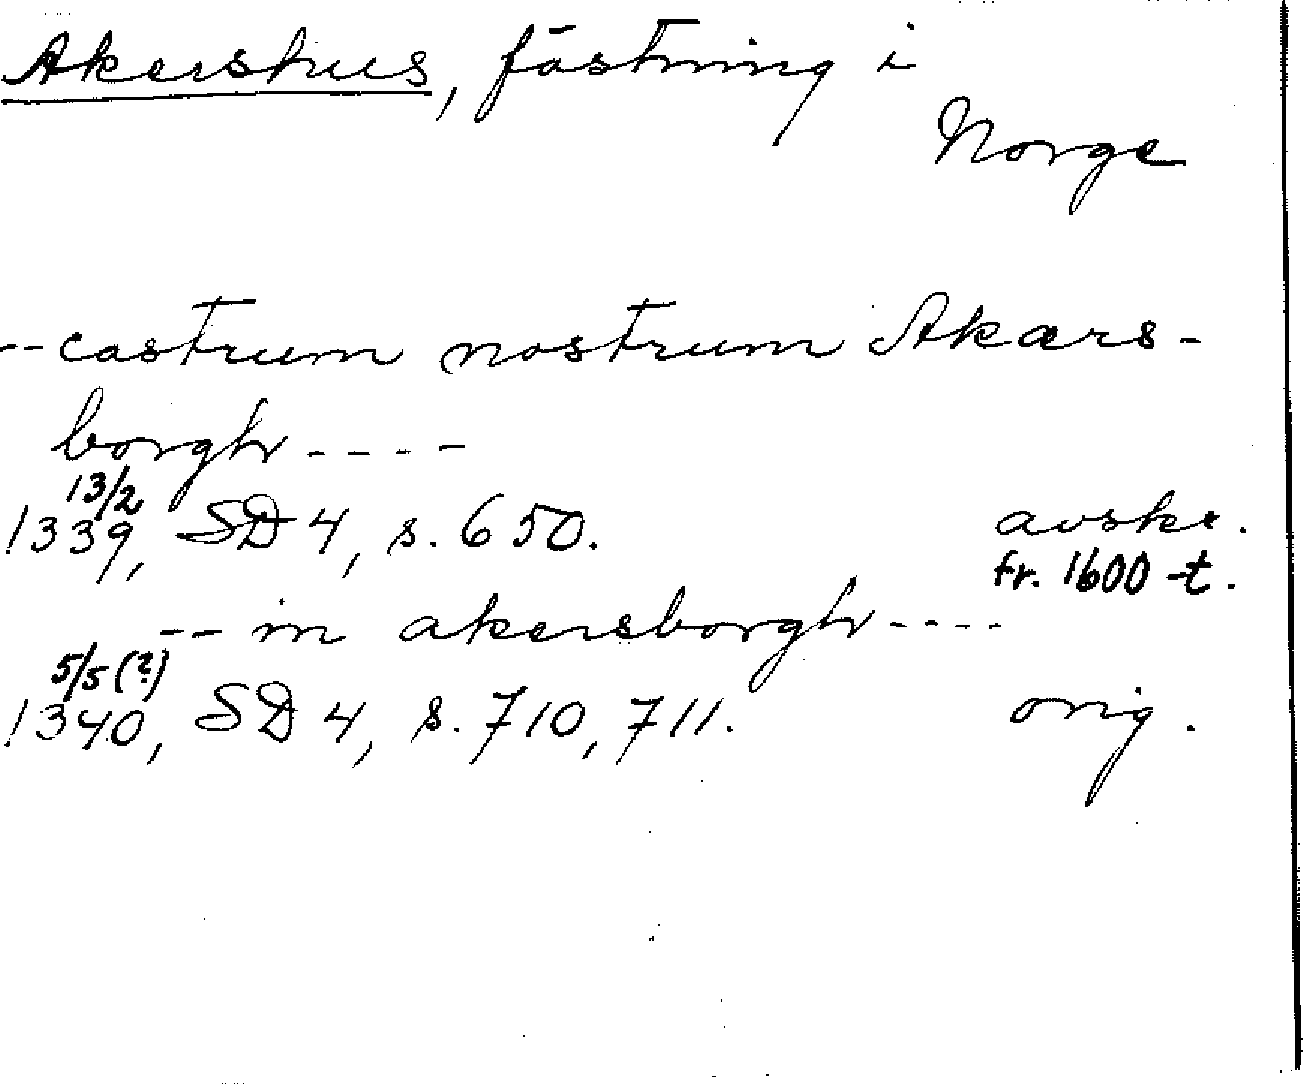 Akershus, fästning i
Norge
-- castrum nostrum Akærs-
borgh ----
13/2
1339, SD 4, s. 650. avskr.
fr. 1600-t.
-- in akersborgh ----
5/5 (?)
1340, SD 4, s. 710, 711. orig.